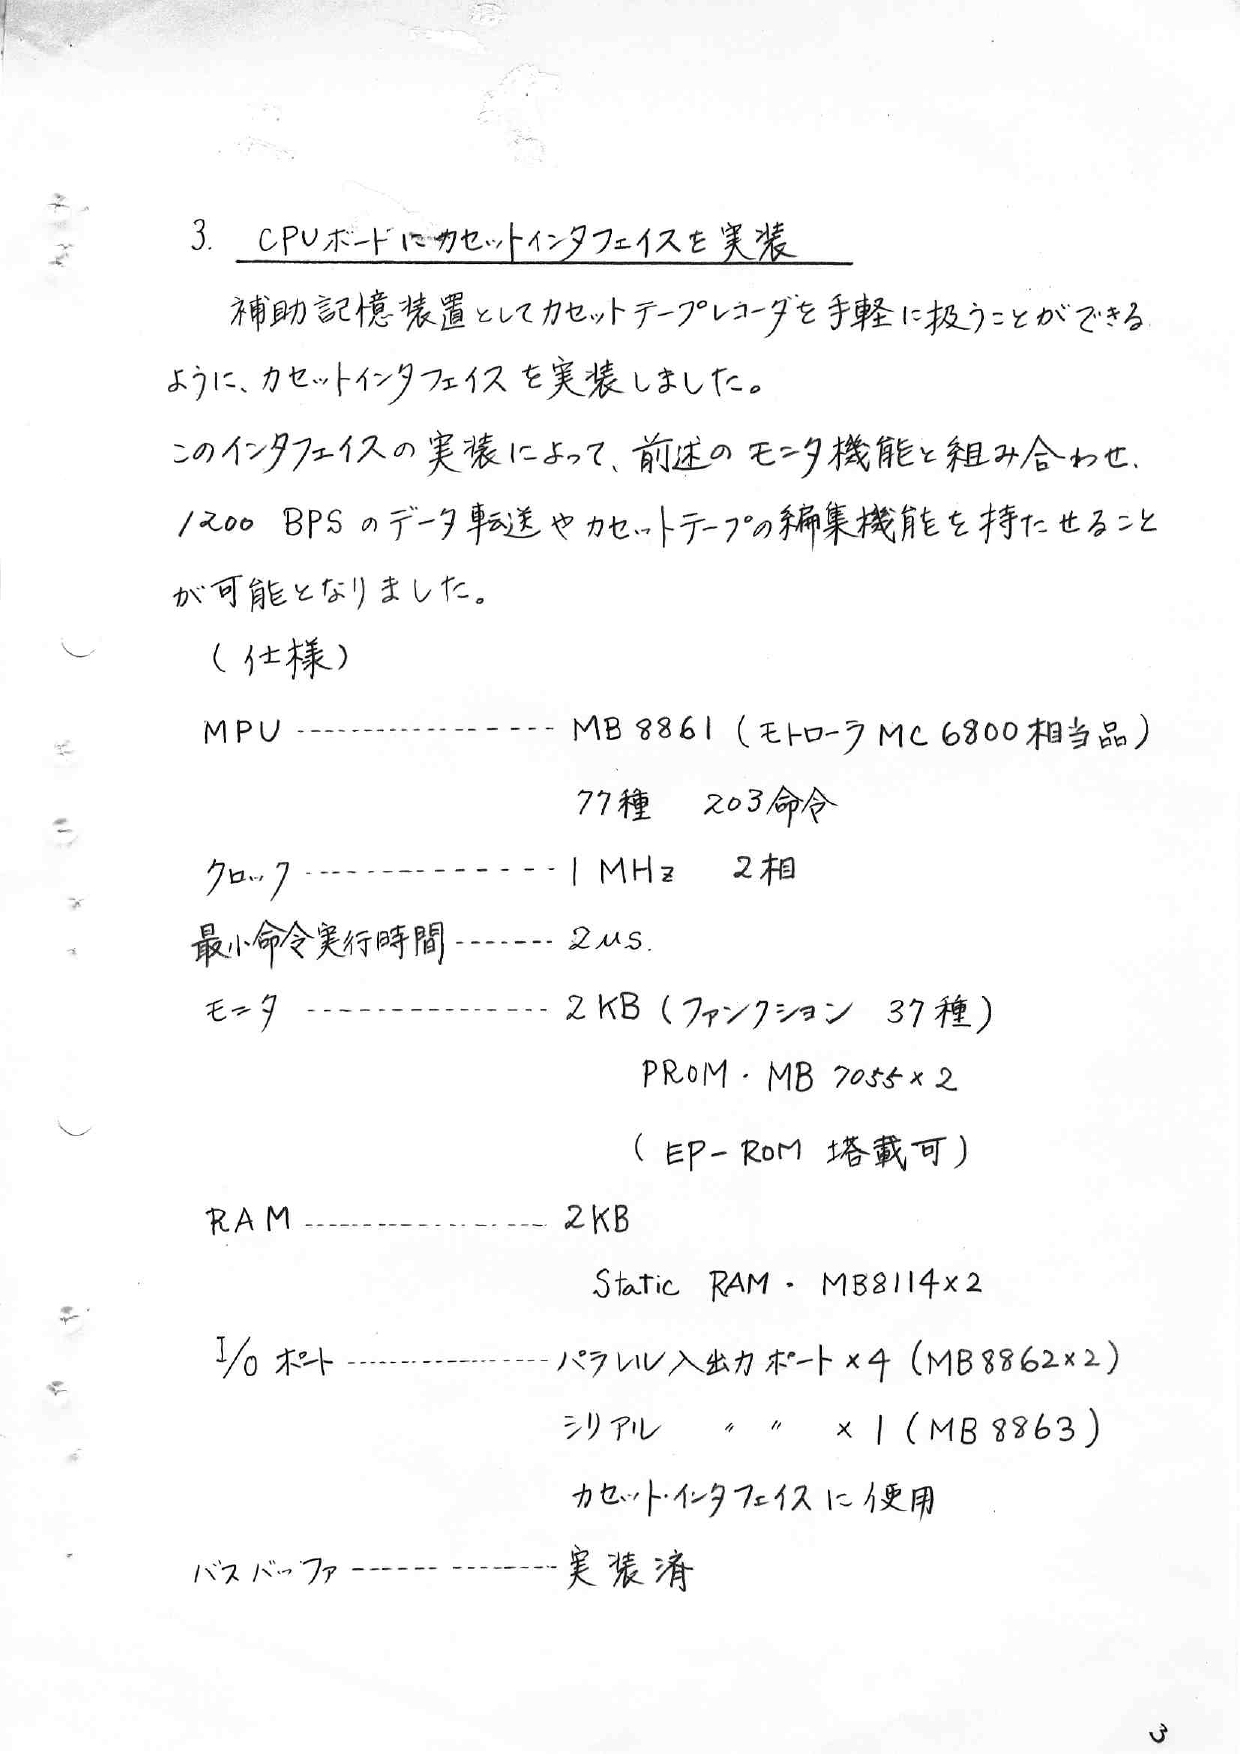 3. CPUボードにカセットインタフェイスを実装
補助記憶装置としてカセットテープレコーダを手軽に扱うことができる
ように、カセットインタフェイスを実装しました。
このインタフェイスの実装によって、前述のモニタ機能と組み合わせ、
1200 BPSのデータ転送やカセットテープの編集機能を持たせること
が可能となりました。
(仕様)
MPU ---------------- MB8861 (モトローラMC6800相当品)
77種 203命令
クロック -------------- 1 MHz 2相
最小命令実行時間 ------- 2μs.
モニタ --------------- 2KB (ファンクション 37種)
PROM・MB 7055×2
(EP-ROM 塔載可)
RAM ---------------- 2KB
Static RAM・MB8114×2
I/Oポート --------------- パラレル入出力ポート×4 (MB8862×2)
シリアル 〃 〃 ×1 (MB8863)
カセット・インタフェイスに使用
バスバッファ ------ -------- 実装済
3